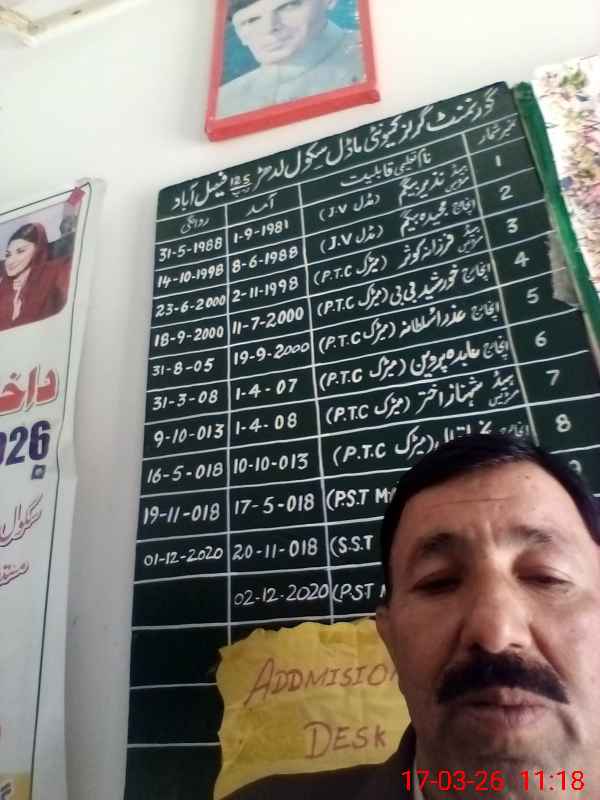 گورنمنٹ گرلز کمیونٹی ماڈل سکول لدھڑ فیصل آباد
نمبر شمار نام تعلیمی قابلیت آمد روانگی
1 ہیڈ مسٹریس نذیر بیگم (مڈل J.V) 1-9-1981 31-5-1988
2 انچارج مجیدہ بیگم (مڈل J.V) 8-6-1988 14-10-1998
3 ہیڈ مسٹریس فرزانہ کوثر (میٹرک P.T.C) 2-11-1998 23-6-2000
4 انچارج خورشید بی بی (میٹرک P.T.C) 11-7-2000 18-9-2000
5 انچارج عذرا سلطانہ (میٹرک P.T.C) 19-9-2000 31-8-05
6 انچارج عابدہ پروین (میٹرک P.T.C) 1-4-07 31-3-08
7 ہیڈ مسٹریس شہناز اختر (میٹرک P.T.C) 1-4-08 9-10-013
8 انچارج (میٹرک P.T.C) 10-10-013 16-5-018
(P.S.T 17-5-018 19-11-018
(S.S.T 20-11-018 01-12-2020
(P.S.T 02-12-2020
ADDMISIO
DESK
داخ
026
سکول
17-03-26 11:18